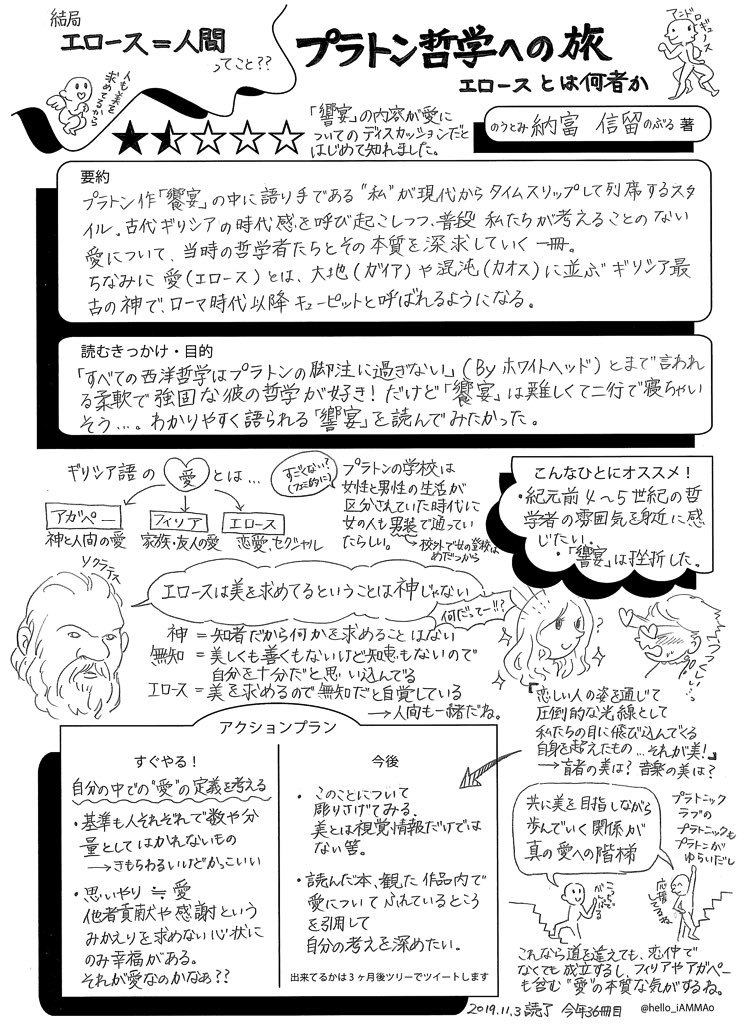 結局
エロース＝人間
ってこと??
プラトン哲学への旅
エロースとは何者か
アンドロギュノス
人も美を
求めてるから
「饗宴」の内容が愛に
ついてのディスカッションだと
はじめて知れました。
のうとみ 納富 信留 のぶる 著
要約
プラトン作「饗宴」の中に語り手である“私”が現代からタイムスリップして列席するスタ
イル。古代ギリシアの時代感を呼び起こしつつ、普段 私たちが考えることのない
愛について、当時の哲学者たちとその本質を深求していく一冊。
ちなみに 愛(エロース)とは、大地(ガイア)や混沌(カオス)に並ぶギリシア最
古の神で、ローマ時代以降キューピットと呼ばれるようになる。
読むきっかけ・目的
「すべての西洋哲学はプラトンの脚注に過ぎない」(Byホワイトヘッド)とまで言われ
る柔軟で強固な彼の哲学が好き！だけど「饗宴」は難しくて二行で寝ちゃい
そう…。わかりやすく語られる「饗宴」を読んでみたかった。
ギリシア語の 愛 とは…
アガペー
神と人間の愛
フィリア
家族・友人の愛
エロース
恋愛、セクシャル
すごくない？
プラトンの学校は
女性と男性の生活が
区分されていた時代に
女の人も男装で通ってい
たらしい。
→校外で女の学校は
めだつから
こんなひとにオススメ！
・紀元前4～5世紀の哲
学者の雰囲気を身近に感
じたい。
・「饗宴」は挫折した。
ソクラテス
エロースは美を求めてるということは神じゃない
何だってー!!?
神 ＝知者だから何かを求めることはない
無知 ＝美しくも善くもないけど知恵もないので
自分を十分だと思い込んでる
エロース＝美を求めるので無知だと自覚している
→人間も一緒だね。
『恋しい人の姿を通じて
圧倒的な光線として
私たちの目に飛び込んでくる
自身を超えたもの…それが美！』
→盲者の美は？音楽の美は？
アクションプラン
すぐやる！
自分の中での“愛”の定義を考える
・基準も人それぞれで数や分
量としてはかれないもの
→きもちわるいけどかっこいい
・思いやり≒愛
他者貢献や感謝という
みかえりを求めない心状に
のみ幸福がある。
それが愛なのかなぁ??
今後
・このことについて
彫りさげてみる。
美とは視覚情報だけでは
ない等。
・読んだ本、観た作品内で
愛についてふれているところ
を引用して
自分の考えを深めたい。
出来てるかは３ヶ月後ツリーでツイートします
共に美を目指しながら
歩んでいく関係が
真の愛への階梯
プラトニック
ラブの
プラトニックも
プラトンが
ゆらいだし
これなら道を違えても、恋仲で
なくても成立するし、フィリアやアガペー
も含む“愛”の本質な気がするね。
2019.11.3 読了 今年36冊目 @hello_iAMMAo